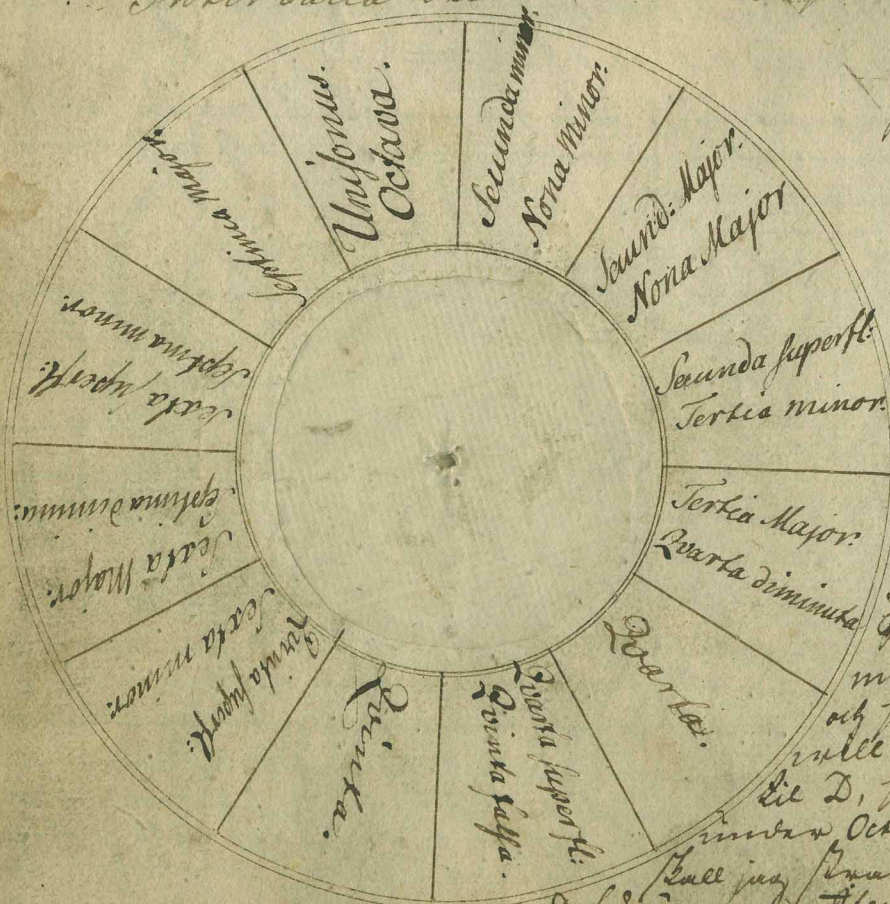 Unisonus.
Octava.
Secunda minor.
Nona minor.
Secund: Major.
Nona Major
Secunda superfl:
Tertia minor.
Tertia Major.
Qvarta diminuta
Qvarta.
Qvarta superfl:
Qvinta falsa.
Qvinta.
Qvinta superfl:
Sexta minor.
Sexta Major.
Septima diminu:
Sexta superfl:
Septima minor.
Septima major.
och
till D,
under Oct
skall jag